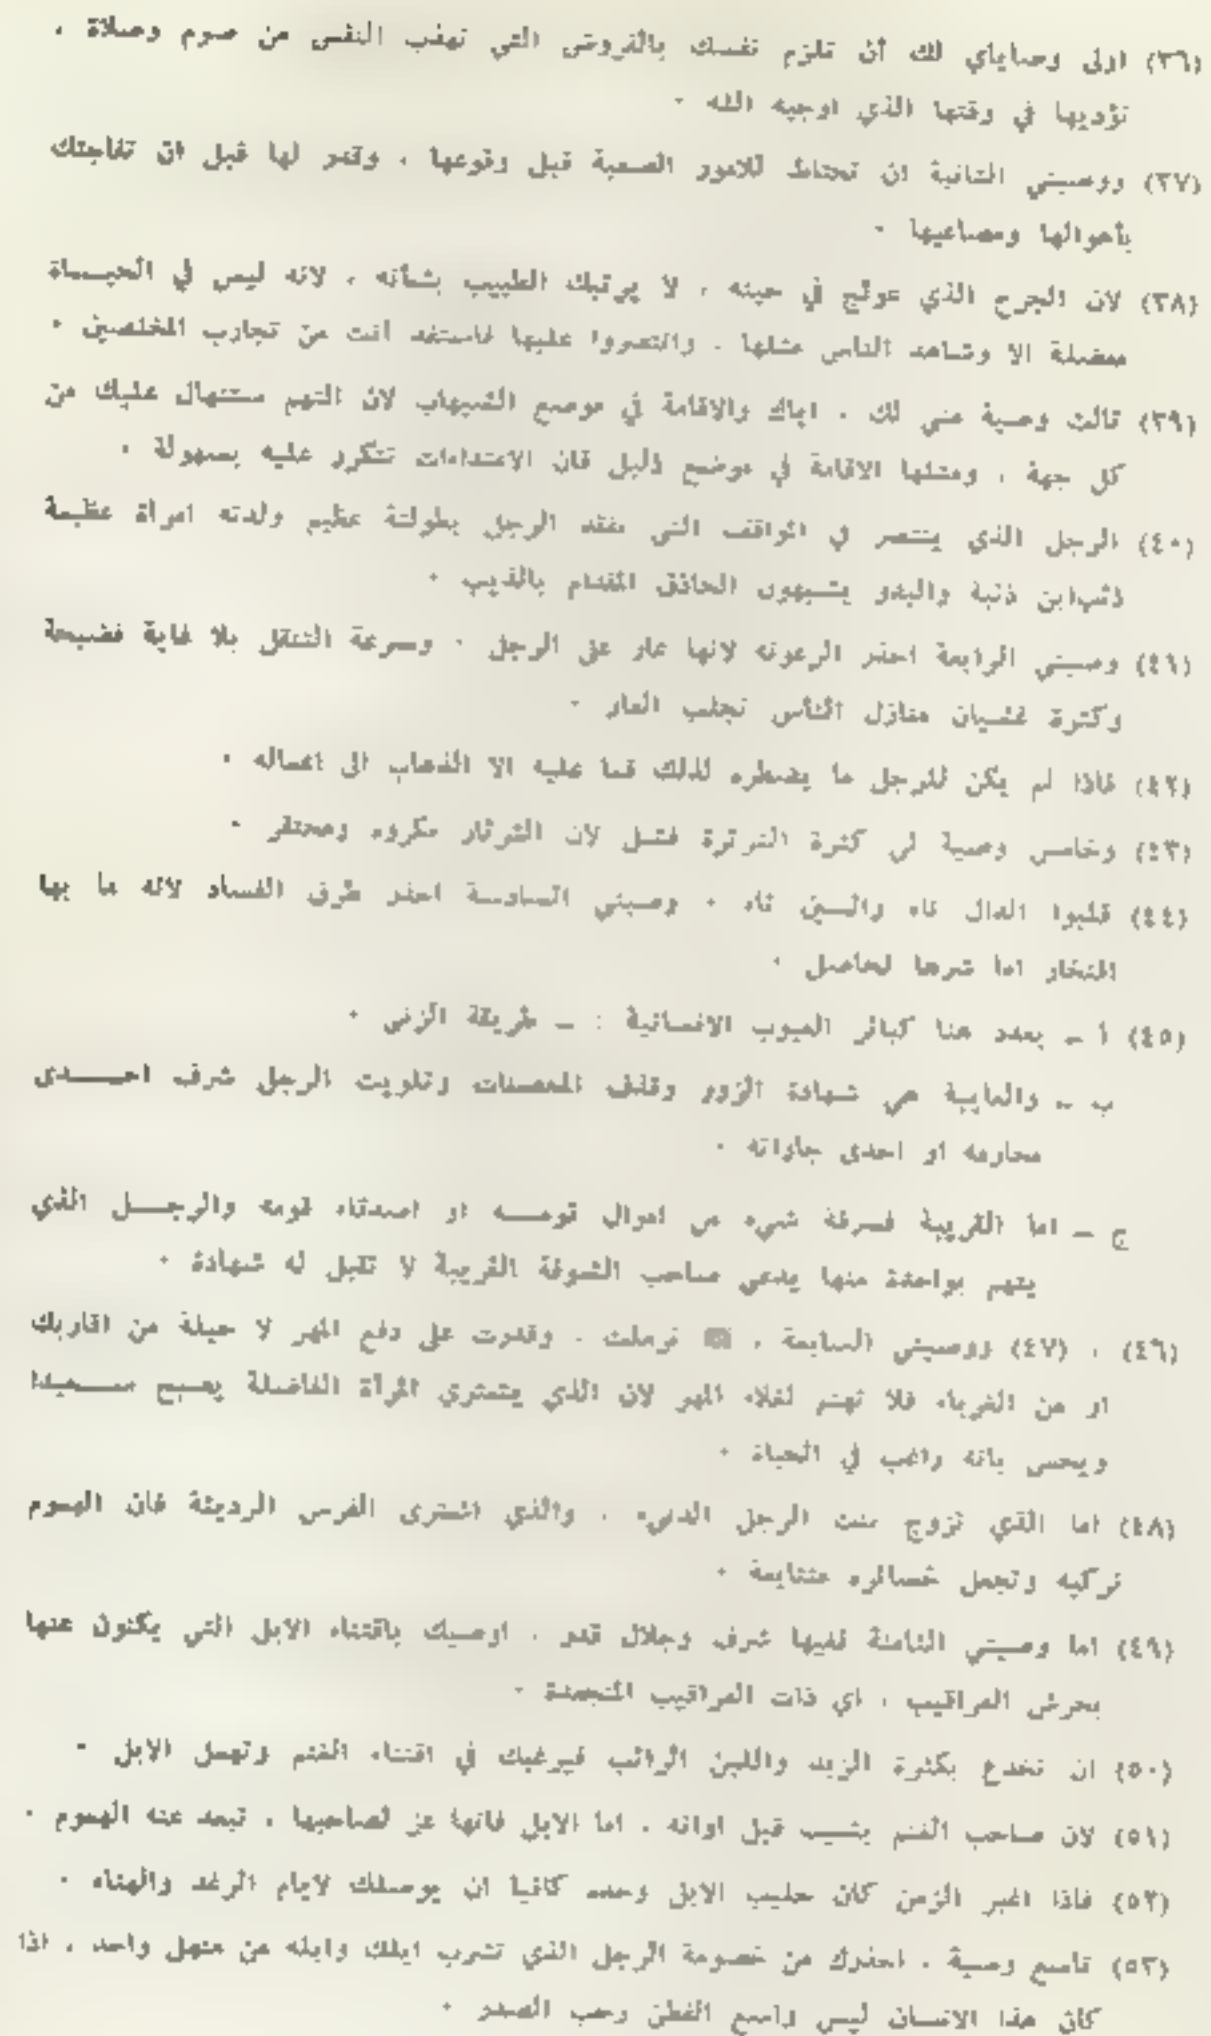 (٣٦) اولى وصاياي لك أن تلزم نفسك بالفروض التي تهذب النفس من صوم وصلاة ،
تؤديها في وقتها الذي اوجبه الله ·
(٣٧) ووصيتي الثانية ان تحتاط للامور الصعبة قبل وقوعها ، وقدر لها قبل ان تفاجئك
بأهوالها ومصاعبها ·
(٣٨) لان الجرح الذي عولج في حينه ، لا يرتبك الطبيب بشأنه ، لانه ليس في الحيـــاة
معضلة الا وشاهد الناس مثلها ، وانتصروا عليها فاستفد انت من تجارب المخلصين ·
(٣٩) ثالث وصية مني لك ، اياك والاقامة في موضع الشبهات لان التهم ستنهال عليك من
كل جهة ، ومثلها الاقامة في موضع ذليل فان الاعتداءات تتكرر عليه بسهولة ·
(٤٠) الرجل الذي ينتصر في المواقف التي تفقد الرجل بطولتة عظيم ولدته امرأة عظيمة
ذئب ابن ذئبة والبدو يشبهون الحاذق المقدام بالذيب ·
(٤١) وصيتي الرابعة احذر الرعونه لانها عار على الرجل · وسرعة التنقل بلا غاية فضيحة
وكثرة غشيان منازل الناس تجلب العار ·
(٤٢) فاذا لم يكن للرجل ما يضطره لذلك فما عليه الا الذهاب الى اعماله ·
(٤٣) وخامس وصية لي كثرة الثرثرة فشل لان الثرثار مكروه ومحتقر ·
(٤٤) قلبوا الدال تاء والسين ثاء · وصيتي السادسة احذر طرق الفساد لانه ما بها
افتخار اما شرها لحاصل ·
(٤٥) أ ــ يعدد هنا كبائر العيوب الانسانية : ــ طريقة الزنى ·
ب ــ والعايبة هي شهادة الزور وقذف المحصنات وتلويث الرجل شرف احـــدى
محارمه او احدى جاراته ·
ج ــ اما القريبة فسرقة شيء من اموال قومـــه او اصدقاء قومه والرجـــل الذي
يتهم بواحدة منها يدعى صاحب الشوفة القريبة لا تقبل له شهادة ·
(٤٦) ، (٤٧) ووصيتي السابعة ، ترملت ، وقدرت على دفع المهر لا حيلة من اقاربك
او من الغرباء فلا تهتم لغلاء المهر لان الذي يشترى المرأة الفاضلة يصبح ســـعيدا
ويحس بانه راغب في الحياة ·
(٤٨) اما الذي تزوج بنت الرجل الدنيء ، والذي اشترى الفرس الرديئة فان الهموم
تركبه وتجعل خسائره متتابعة ·
(٤٩) اما وصيتي الثامنة ففيها شرف وجلال قدر ، اوصيك باقتناء الابل التي يكنون عنها
بحرش العراقيب ، اي ذات العراقيب المتجعدة ·
(٥٠) ان تخدع بكثرة الزبد واللبن الرائب فيرغبك في اقتناء الغنم وتهمل الابل ·
(٥١) لان صاحب الغنم يشيب قبل اوانه ، اما الابل فانها عز لصاحبها ، تبعد عنه الهموم ·
(٥٢) فاذا اغبر الزمن كان حليب الابل وحده كافيا ان يوصلك لايام الرغد والهناء ·
(٥٣) تاسع وصية ، احذرك من خصومة الرجل الذي تشرب ابلك وابله من منهل واحد ، اذا
كان هذا الانسان ليس واسع الفطن رحب الصدر ·